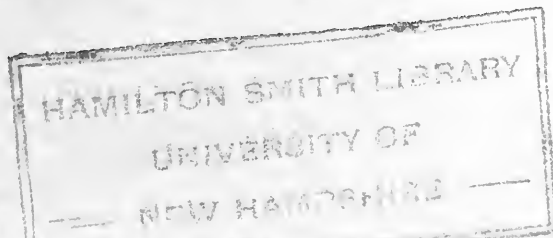 HAMILTON SMITH LIBRARY
UNIVERSITY OF
NEW HAMPSHIRE